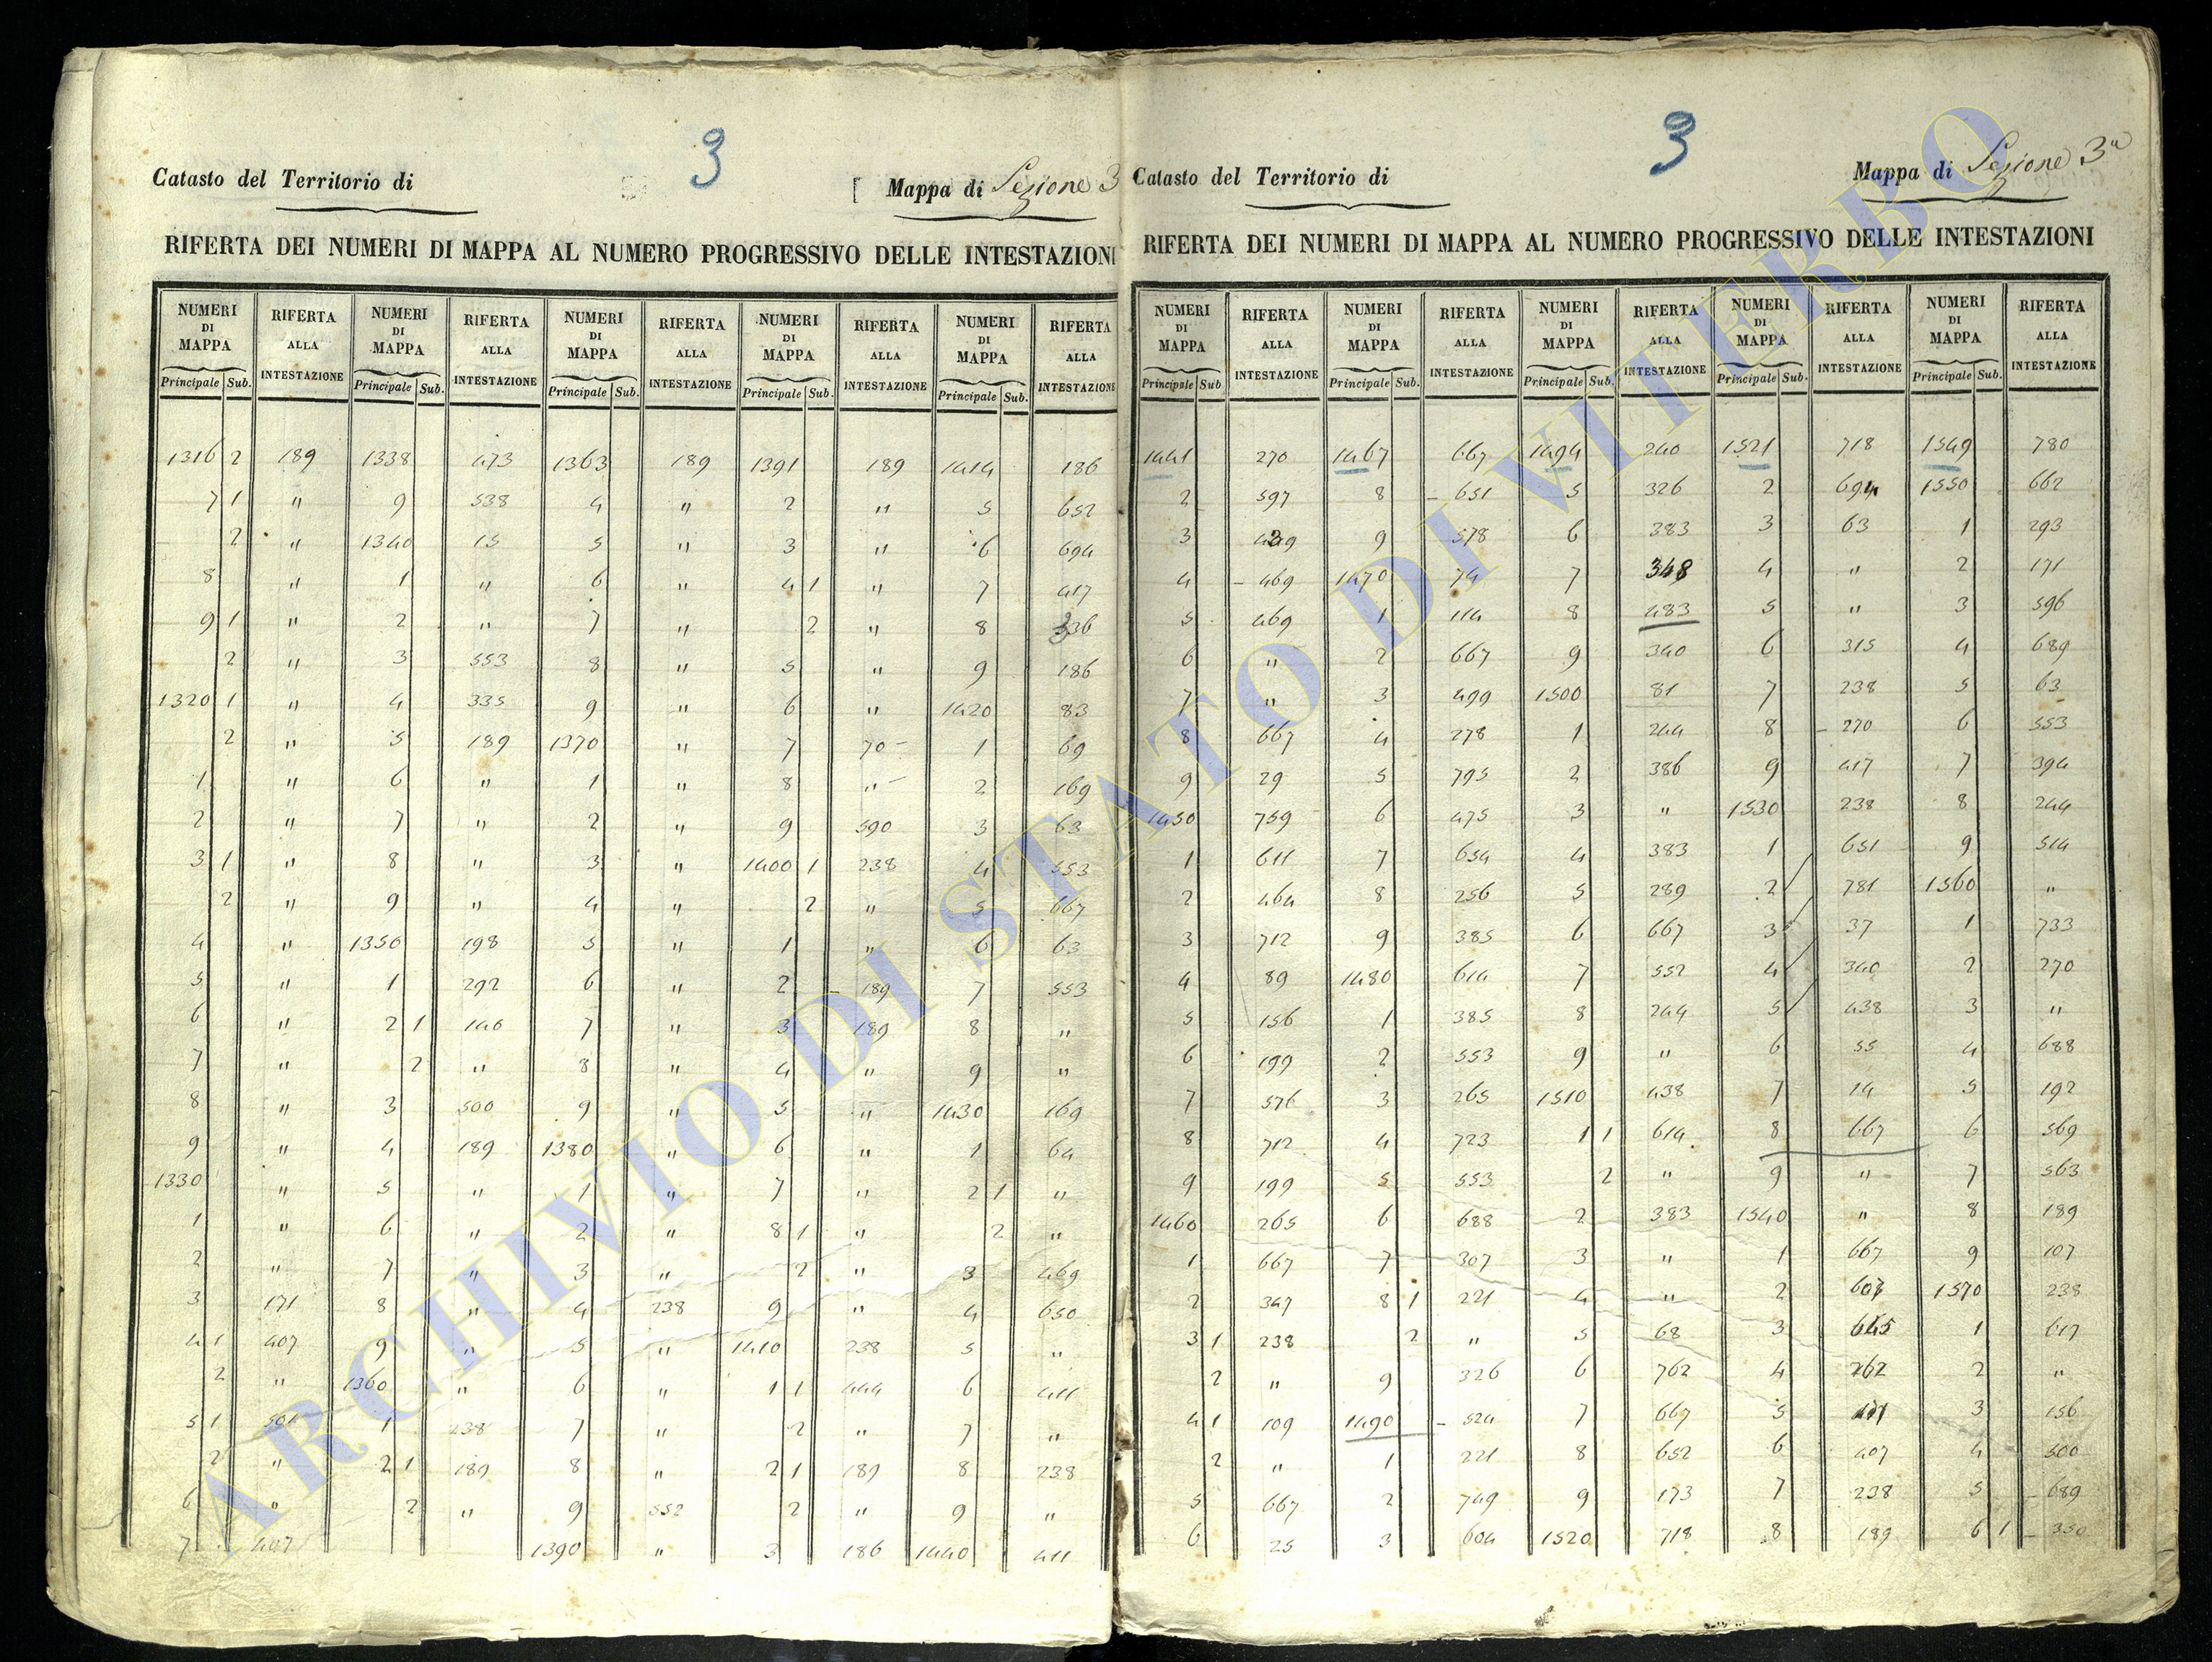 3
Catasto del Territorio di
Mappa di Sezione 3
RIFERTA DEI NUMERI DI MAPPA AL NUMERO PROGRESSIVO DELLE INTESTAZIONI
NUMERI DI MAPPA RIFERTA ALLA INTESTAZIONE NUMERI DI MAPPA RIFERTA ALLA INTESTAZIONE NUMERI DI MAPPA RIFERTA ALLA INTESTAZIONE NUMERI DI MAPPA RIFERTA ALLA INTESTAZIONE NUMERI DI MAPPA RIFERTA ALLA INTESTAZIONE
Principale Sub. Principale Sub. Principale Sub. Principale Sub. Principale Sub.
1316 2 189 1338 473 1363 189 1391 189 1414 186
7 1 " 9 538 4 " 2 " 5 652
2 " 1340 15 5 " 3 " 6 694
8 " 1 " 6 " 4 1 " 7 417
9 1 " 2 " 7 " 2 " 8 336
2 " 3 553 8 " 5 " 9 186
1320 1 " 4 335 9 " 6 " 1420 83
2 " 5 189 1370 " 7 70 1 69
1 " 6 " 1 " 8 " 2 169
2 " 7 " 2 " 9 590 3 63
3 1 " 8 " 3 " 1400 1 238 4 553
2 " 9 " 4 " 2 " 5 667
4 " 1350 198 5 " 1 " 6 63
5 " 1 292 6 " 2 189 7 553
6 " 2 1 146 7 " 3 189 8 "
7 " 2 " 8 " 4 " 9 "
8 " 3 500 9 " 5 " 1430 169
9 " 4 189 1380 " 6 " 1 64
1330 " 5 " 1 " 7 " 2 1 "
1 " 6 " 2 " 8 1 " 2 "
2 " 7 " 3 " 2 " 3 469
3 171 8 " 4 238 9 " 4 650
4 1 407 9 " 5 " 1410 238 5 "
2 " 1360 " 6 " 1 1 444 6 411
5 1 501 1 238 7 " 2 " 7 "
2 " 2 1 189 8 " 2 1 189 8 238
6 " 2 " 9 552 2 " 9 "
7 407 1390 " 3 186 1440 411
3
Catasto del Territorio di
Mappa di Sezione 3a
RIFERTA DEI NUMERI DI MAPPA AL NUMERO PROGRESSIVO DELLE INTESTAZIONI
NUMERI DI MAPPA RIFERTA ALLA INTESTAZIONE NUMERI DI MAPPA RIFERTA ALLA INTESTAZIONE NUMERI DI MAPPA RIFERTA ALLA INTESTAZIONE NUMERI DI MAPPA RIFERTA ALLA INTESTAZIONE NUMERI DI MAPPA RIFERTA ALLA INTESTAZIONE
Principale Sub Principale Sub. Principale Sub. Principale Sub. Principale Sub.
1441 270 1467 667 1494 240 1521 718 1549 780
2 597 8 651 5 326 2 694 1550 662
3 9 578 6 383 3 63 1 293
4 469 1470 74 7 348 4 " 2 171
5 469 1 114 8 483 5 " 3 596
6 " 2 667 9 340 6 315 4 689
7 " 3 499 1500 81 7 238 5 63
8 667 4 278 1 244 8 270 6 553
9 29 5 795 2 386 9 417 7 394
1450 759 6 475 3 " 1530 238 8 244
1 611 7 654 4 383 1 651 9 514
2 464 8 256 5 289 2 781 1560 "
3 712 9 385 6 667 3 37 1 733
4 89 1480 614 7 552 4 340 2 270
5 156 1 385 8 244 5 438 3 "
6 199 2 553 9 " 6 55 4 688
7 576 3 265 1510 438 7 14 5 192
8 712 4 723 1 1 614 8 667 6 569
9 199 5 553 2 " 9 " 7 563
1460 265 6 688 2 383 1540 " 8 189
1 667 7 307 3 " 1 667 9 107
2 347 8 1 221 4 " 2 607 1570 238
3 1 238 2 " 5 68 3 645 1 617
2 " 9 326 6 762 4 262 2 "
4 1 109 1490 524 7 667 5 3 156
2 " 1 221 8 652 6 407 4 500
5 667 2 749 9 173 7 238 5 689
6 25 3 604 1520 718 8 189 6 1 350
ARCHIVIO DI STATO DI VITERBO